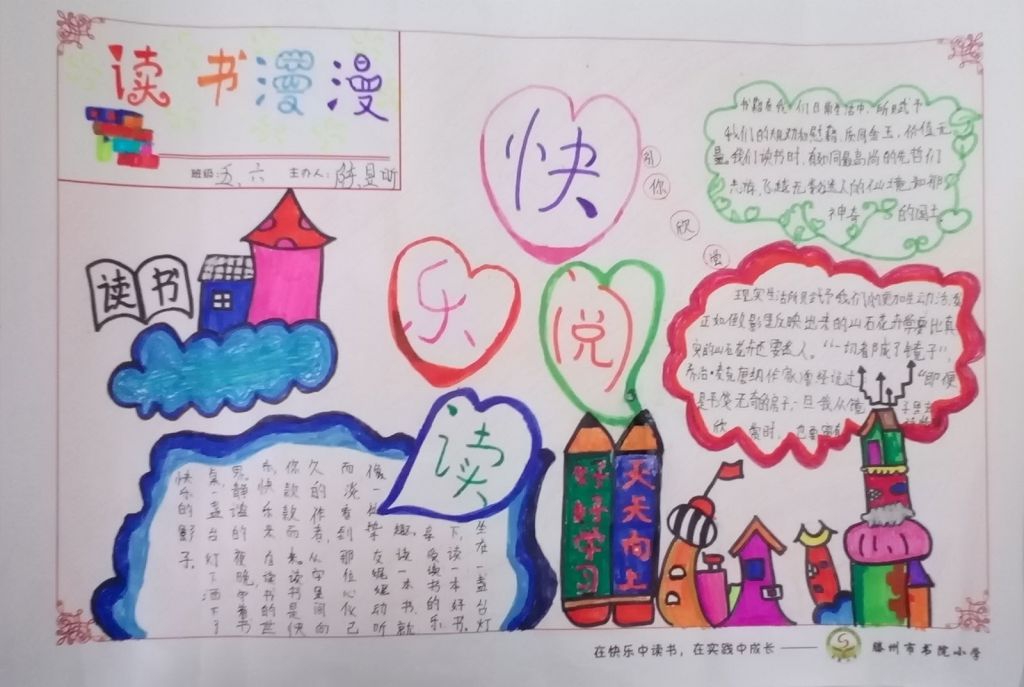 读书漫漫
班级:五、六 主办人:陈
快
乐
阅
读
引你欣赏
读书
书籍在我们日常生活中,所赋予
我们的规劝和慰藉,质同金玉,价值无
量。我们读书时,有如同最高尚的先哲们
共游,飞越无数迷人的仙境和那
神奇的国土。
现实生活所赋予我们的更加生动活泼
正如倒影里反映出来的山石花卉常要比真
实的山石花卉还要迷人。“一切都成了镜子”,
乔治·麦克唐纳作家曾经说过“即便
是平凡无奇的房子;但我从镜子里去
欣赏时,也要富有
坐在一盏台灯
下,读一本好书,
享受读书的乐
趣。读一本书,就
像一位挚友娓娓动听
而谈,看到那位心仪已
久的作者,从字里间向
你款款而来。读书是快
乐,快乐来自读书的世
界,静谧的夜晚,守着书
桌,一盏台灯下洒下了
快乐的影子。
好好学习
天天向上
在快乐中读书,在实践中成长——
滕州市书院小学